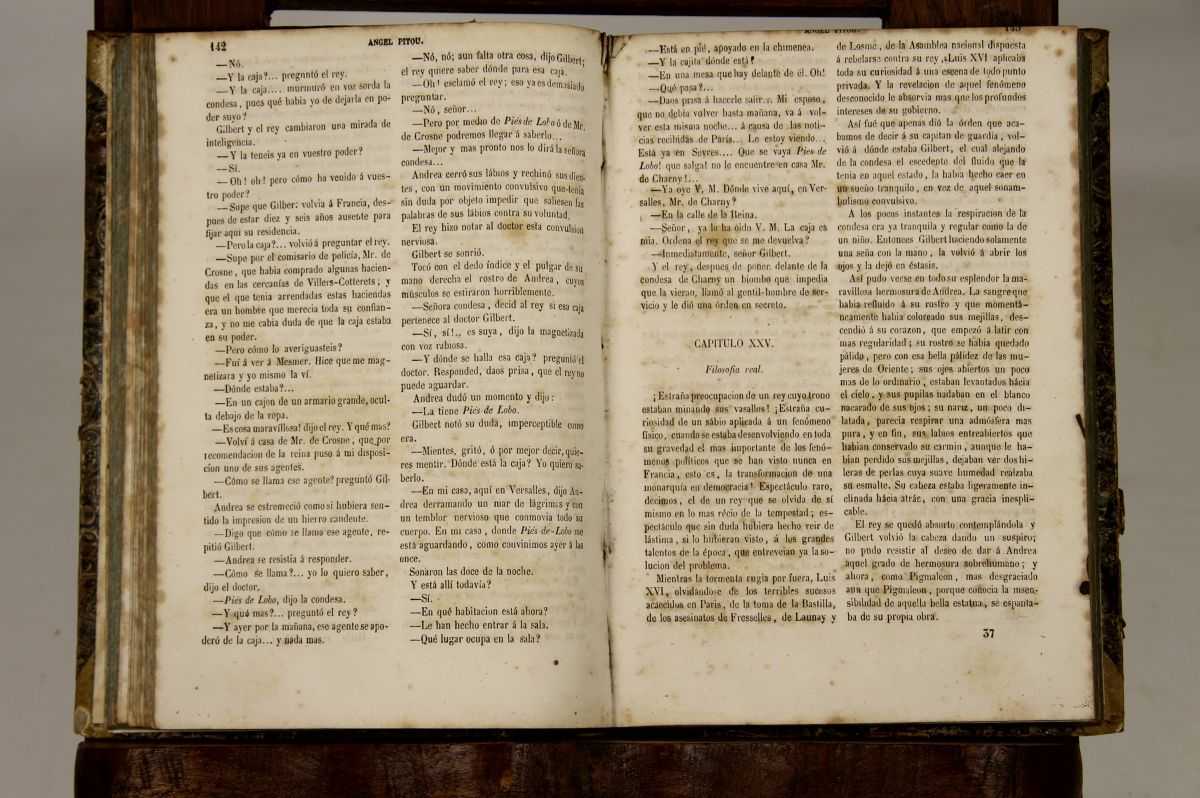 142
ANGEL PITOU.
—Nó.
—Y la caja?... preguntó el rey.
—Y la caja.... murmuró en voz sorda la
condesa, pues qué habia yo de dejarla en po-
der suyo?
Gilbert y el rey cambiaron una mirada de
inteligencia.
—Y la teneis ya en vuestro poder?
—Sí.
—Oh! oh! pero cómo ha venido á vues-
tro poder?
—Supe que Gilber: volvia á Francia, des-
pues de estar diez y seis años ausente para
fijar aqui su residencia.
—Pero la caja?... volvió á preguntar el rey.
—Supe por el comisario de policía, Mr. de
Crosne, que habia comprado algunas hacien-
das en las cercanías de Villers-Cotterets; y
que el que tenia arrendadas estas haciendas
era un hombre que merecia toda su confian-
za, y no me cabia duda de que la caja estaba
en su poder.
—Pero cómo lo averiguasteis?
—Fuí á ver á Mesmer. Hice que me mag-
netizara y yo mismo la ví.
—Dónde estaba?...
—En un cajon de un armario grande, ocul-
ta debajo de la ropa.
—Es cosa maravillosa! dijo el rey. Y qué mas?
—Volví á casa de Mr. de Crosne, que por
recomendacion de la reina puso á mi disposi-
cion uno de sus agentes.
—Cómo se llama ese agente? preguntó Gil-
bert.
Andrea se estremeció como si hubiera sen-
tido la impresion de un hierro candente.
—Digo que cómo se llama ese agente, re-
pitió Gilbert.
—Andrea se resistia á responder.
—Cómo se llama?... yo lo quiero saber,
dijo el doctor.
—Piés de Lobo, dijo la condesa.
—Y qué mas?... preguntó el rey?
—Y ayer por la mañana, ese agente se apo-
deró de la caja... y nada mas.
—Nó, nó; aun falta otra cosa, dijo Gilbert;
el rey quiere saber dónde para esa caja.
—Oh! esclamó el rey; eso ya es demasiado
preguntar.
—Nó, señor...
—Pero por medio de Piés de Lobo ó de Mr.
de Crosne podremos llegar á saberlo...
—Mejor y mas pronto nos lo dirá la señora
condesa...
Andrea cerró sus lábios y rechinó sus dien-
tes, con un movimiento convulsivo que tenia
sin duda por objeto impedir que saliesen las
palabras de sus lábios contra su voluntad.
El rey hizo notar al doctor esta convulsion
nerviosa.
Gilbert se sonrió.
Tocó con el dedo índice y el pulgar de su
mano derecha el rostro de Andrea, cuyos
músculos se estiraron horriblemente.
—Señora condesa, decid al rey si esa caja
pertenece al doctor Gilbert.
—Sí, sí!.. es suya, dijo la magnetizada
con voz rabiosa.
—Y dónde se halla esa caja? preguntó el
doctor. Responded, daos prisa, que el rey no
puede aguardar.
Andrea dudó un momento y dijo:
—La tiene Piés de Lobo.
Gilbert notó su duda, imperceptible como
era.
—Mientes, gritó, ó por mejor decir, quie-
res mentir. Dónde está la caja? Yo quiero sa-
berlo.
—En mi casa, aquí en Versalles, dijo An-
drea derramando un mar de lágrimas y con
un temblor nervioso que conmovia todo su
cuerpo. En mi casa, donde Piés de-Lobo me
está aguardando, como convinimos ayer á las
once.
Sonaron las doce de la noche.
Y está allí todavía?
—Sí.
—En qué habitacion está ahora?
—Le han hecho entrar á la sala.
—Qué lugar ocupa en la sala?
ANGEL PITOU.
143
—Está en pié, apoyado en la chimenea.
—Y la cajita dónde está?
—En una mesa que hay delante de él. Oh!
—Qué pasa?...
—Daos prisa á hacerle salir... Mi esposo,
que no debia volver hasta mañana, va á vol-
ver esta misma noche... á causa de las noti-
cias recibidas de París... Le estoy viendo...
Está ya en Sevres.... Que se vaya Pies de
Lobo! que salga! no le encuentre en casa Mr.
de Charny!...
—Ya oye V. M. Dónde vive aquí, en Ver-
salles, Mr. de Charny?
—En la calle de la Reina.
—Señor, ya lo ha oido V. M. La caja es
mia. Ordena el rey que se me devuelva?
—Inmediatamente, señor Gilbert.
Y el rey, despues de poner delante de la
condesa de Charny un biombo que impedia
que la vieran, llamó al gentil-hombre de ser-
vicio y le dió una órden en secreto.
CAPITULO XXV.
Filosofía real.
¡Estraña preocupacion de un rey cuyo trono
estaban minando sus vasallos! ¡Estraña cu-
riosidad de un sábio aplicada á un fenómeno
físico, cuando se estaba desenvolviendo en toda
su gravedad el mas importante de los fenó-
menos políticos que se han visto nunca en
Francia, esto es, la transformacion de una
monarquía en democracia! Espectáculo raro,
decimos, el de un rey que se olvida de sí
mismo en lo mas récio de la tempestad; es-
pectáculo que sin duda hubiera hecho reir de
lástima, si lo hubieran visto, á los grandes
talentos de la época, que entreveian ya la so-
lucion del problema.
Mientras la tormenta rugia por fuera, Luis
XVI, olvidándose de los terribles sucesos
acaecidos en Paris, de la toma de la Bastilla,
de los asesinatos de Fresselles, de Launay y
de Losme, de la Asamblea nacional dispuesta
á rebelarse contra su rey, Luis XVI aplicaba
toda su curiosidad á una escena de todo punto
privada. Y la revelacion de aquel fenómeno
desconocido le absorvia mas que los profundos
intereses de su gobierno.
Así fué que apenas dió la órden que aca-
bamos de decir á su capitan de guardia, vol-
vió á dónde estaba Gilbert, el cual alejando
de la condesa el escedente del fluido que la
tenia en aquel estado, la habia hecho caer en
un sueño tranquilo, en vez de aquel sonam-
bulismo convulsivo.
A los pocos instantes la respiracion de la
condesa era ya tranquila y regular como la de
un niño. Entonces Gilbert haciendo solamente
una seña con la mano, la volvió á abrir los
ojos y la dejó en éstasis.
Así pudo verse en todo su esplendor la ma-
ravillosa hermosura de Andrea. La sangre que
habia refluido á su rostro y que momentá-
neamente habia coloreado sus mejillas, des-
cendió á su corazon, que empezó á latir con
mas regularidad; su rostro se habia quedado
pálido, pero con esa bella pálidez de las mu-
jeres de Oriente; sus ojos abiertos un poco
mas de lo ordinario, estaban levantados hácia
el cielo, y sus pupilas nadaban en el blanco
nacarado de sus ojos; su nariz, un poco di-
latada, parecia respirar una admósfera mas
pura, y en fin, sus labios entreabiertos que
habian conservado su carmin, aunque le ha-
bian perdido sus mejillas, dejaban ver dos hi-
leras de perlas cuya suave humedad realzaba
su esmalte. Su cabeza estaba ligeramente in-
clinada hácia atrás, con una gracia inespli-
cable.
El rey se quedó absorto contemplándola y
Gilbert volvió la cabeza dando un suspiro;
no pudo resistir al deseo de dar á Andrea
aquel grado de hermosura sobrehumano; y
ahora, como Pigmaleon, mas desgraciado
aun que Pigmaleon, porque conocia la insen-
sibilidad de aquella bella estatua, se espanta-
ba de su propia obra.
37